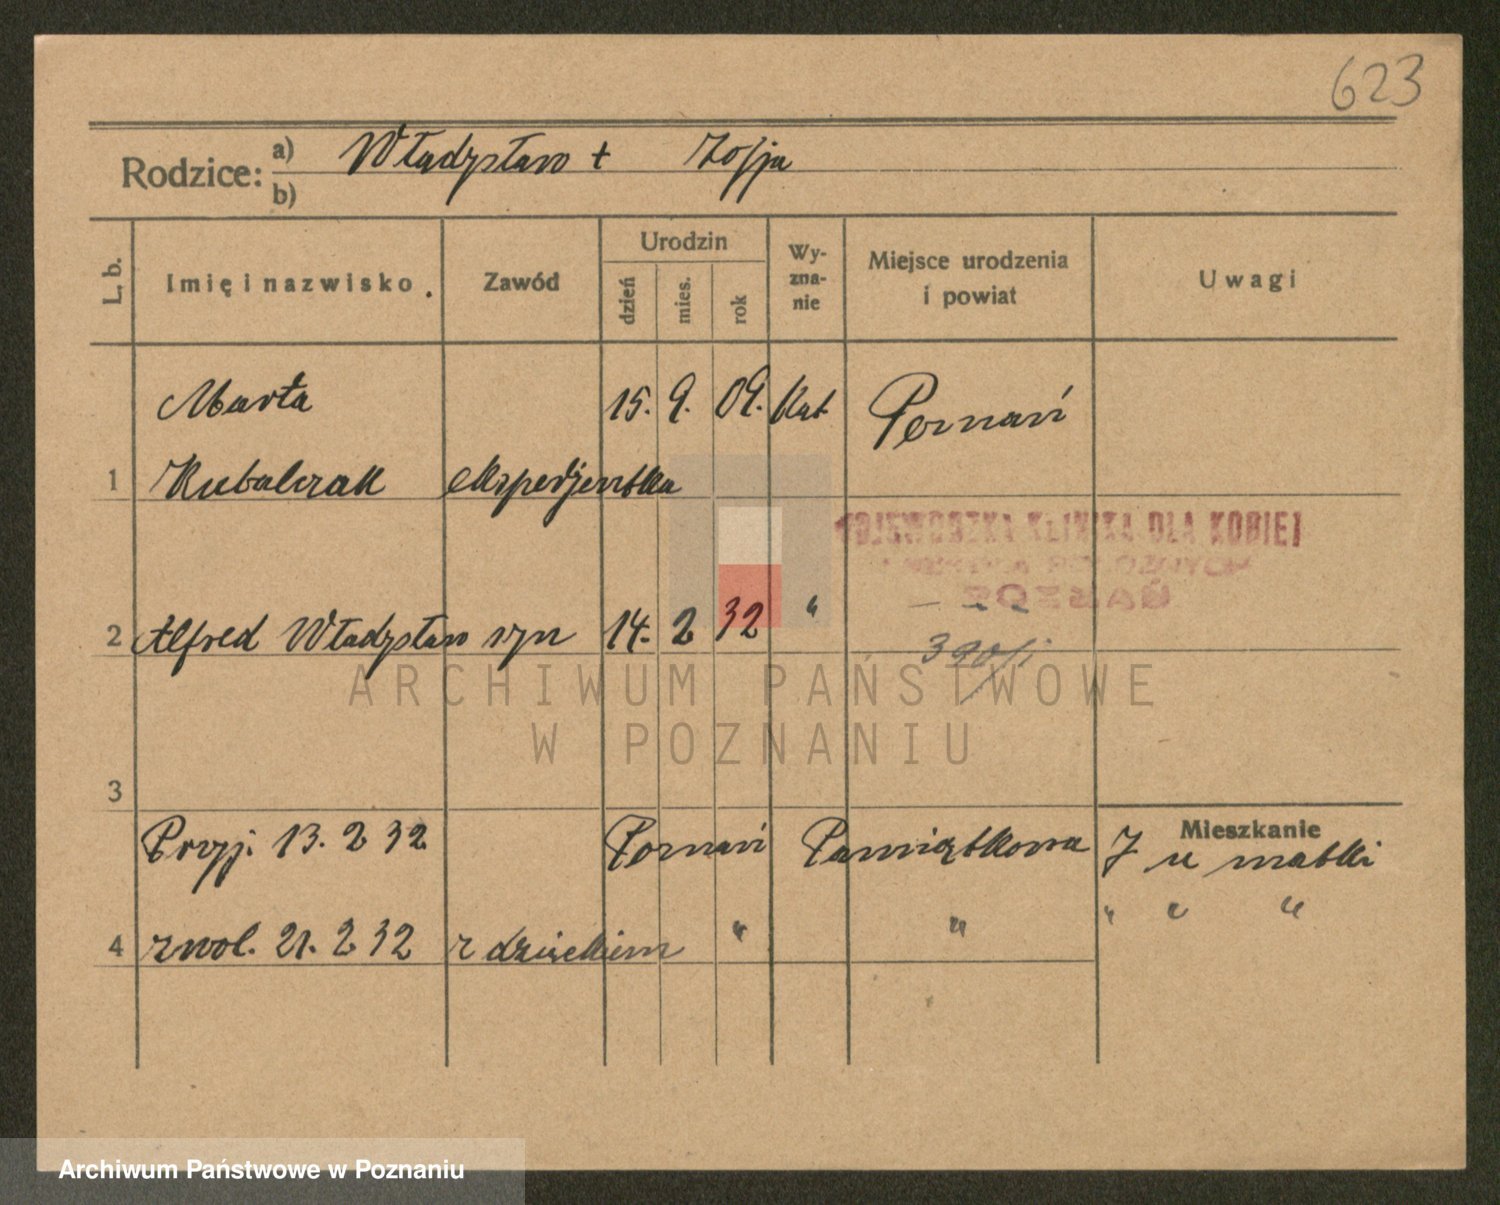 623
Rodzice: a) Władysław + Zofja
b)
L. b. Imię i nazwisko Zawód Urodzin dzień mies. rok Wy-zna-nie Miejsce urodzenia i powiat Uwagi
Marta 15. 9. 09. Kat. Poznań
1 Kubalczak ekspedjentka
WOJEWÓDZKA KLINIKA DLA KOBIET
POZNAŃ
2 Alfred Władysław syn 14. 2 32 "
ARCHIWUM PAŃSTWOWE
W POZNANIU
3
Mieszkanie
Przyj. 13. 2 32 Poznań Pamiątkowa 7 u matki
4 zwol. 21. 2 32 z dzieckiem " " " " "
Archiwum Państwowe w Poznaniu